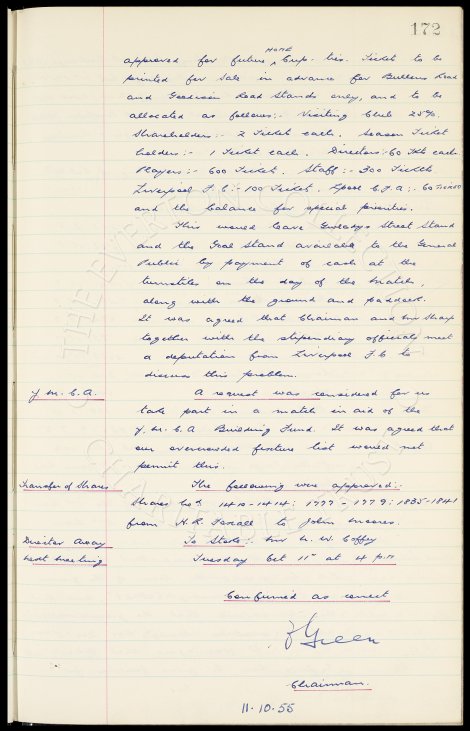 172
approved for future HOME Cup. ties. Ticket to be
printed for sale in advance for Bullens Road
and Goodison Road Stands only, and to be
allocated as follows:- Visiting Club 25%.
Shareholders:- 2 Ticket each. Season Ticket
holders:- 1 Ticket each. Directors:- 60 Tkts each.
Players:- 600 Ticket. Staff:- 300 Tickets
Liverpool F.C:- 100 Ticket. Lpool C.F.A:- 60 Tickets
and the balance for special priorities.
This would leave Gwladys Street Stand
and the Goal Stand available to the General
Public by payment of cash at the
turnstiles on the day of the match,
along with the ground and paddock.
It was agreed that Chairman and Mr Sharp
together with the stipendiary officials meet
a deputation from Liverpool F.C to
discuss this problem.
Y.M.C.A. A request was considered for us
take part in a match in aid of the
Y.M.C.A Building Fund. It was agreed that
our overcrowded fixture list would not
permit this.
Transfer of Shares The following were approved:-
Shares Nos. 1410-1414: 1777-1779: 1835-1841
from H.R. to John Moores.
Director Away To Stoke:- Mr C. W. Coffey
Next Meeting Tuesday Oct 11th at 4 p.m
Confirmed as correct
Green
Chairman.
11.10.55
THE EVERTON COLLECTION
CHARITABLE TRUST